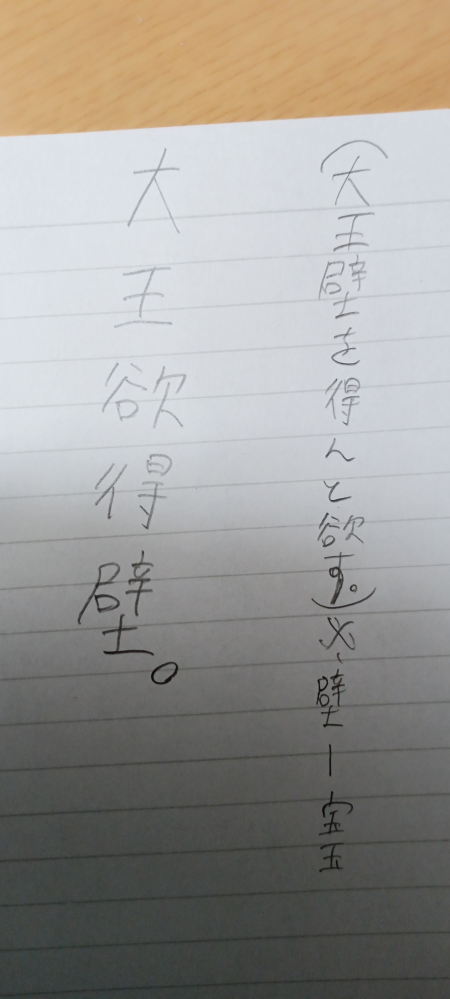 (大王壁を得んと欲す。)※壁ー宝玉
大王欲得壁。